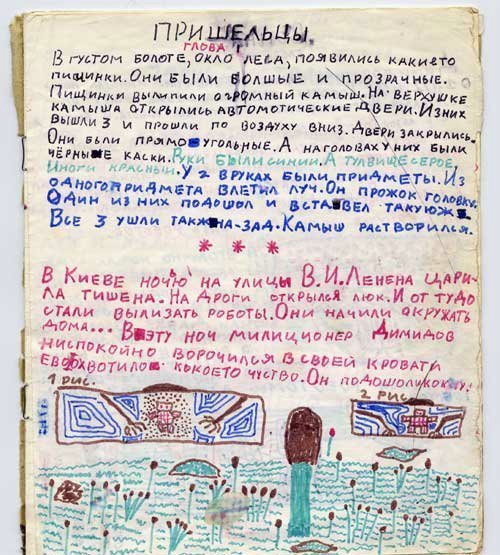 ПРИШЕЛЬЦЫ.
ГЛОВА I
В ГУСТОМ БОЛОГЕ, ОКЛО ЛЕСА, ПОЯВИЛИСЬ КАКИЕТО
ПИЩИНКИ. ОНИ БЫЛИ БОЛШЫЕ И ПРОЗРАЧНЫЕ.
ПИЩИНКИ ВЫЛИПИЛИ ОГРОМНЫЙ КАМЫШ. НА ВЕРХУШКЕ
КАМЫША ОТКРЫЛИСЬ АВТОМОТИЧЕСКИЕ ДВЕРИ. ИЗ НИХ
ВЫШЛИ 3 И ПРОШЛИ ПО ВОЗДУХУ ВНИЗ. ДВЕРИ ЗАКРЫЛИСЬ.
ОНИ БЫЛИ ПРЯМОУГОЛЬНЫЕ. А НАГОЛОВАХУ НИХ БЫЛИ
ЧЁРНЫЕ КАСКИ. РУКИ БЫЛИ СИНИИ. А ТУЛВИЩЕ СЕРОЕ,
ННОГИ КРАСНЫИ. У 2 ВРУКАХ БЫЛИ ПРИДМЕТЫ. ИЗ
ОДНОГО ПРИДМЕТА ВЛЕТИЛ ЛУЧ. ОН ПРОЖОК ГОЛОВКУ.
ОДИН ИЗ НИХ ПОДОШОЛ И ВСТАВЕЛ ТАКУЮЖ
ВСЕ 3 УШЛИ ТАКЖНА-ЗАД. КАМЫШ РАСТВОРИЛСЯ.
* * *
В КИЕВЕ НОЧЬЮ НА УЛИЦЫ В.И. ЛЕНЕНА ЦАРИ-
ЛА ТИШЕНА. НА ДРОГИ ОТКРЫЛСЯ ЛЮК. И ОТ ТУДО
СТАЛИ ВЫЛИЗАТЬ РОБОТЫ. ОНИ НАЧИЛИ ОКРУЖАТЬ
ДОМА... В ЭТУ НОЧ МИЛИЦИОНЕР ДИМИДОВ
НИСПОКОЙНО ВОРОЧИЛСЯ В СВОЕЙ КРОВАТИ
ЕВО ХВОТИЛО КОКОЕТО ЧУСТВО. ОН ПОДОШОЛ КОКНУ!
1 РИС.
2 РИС.